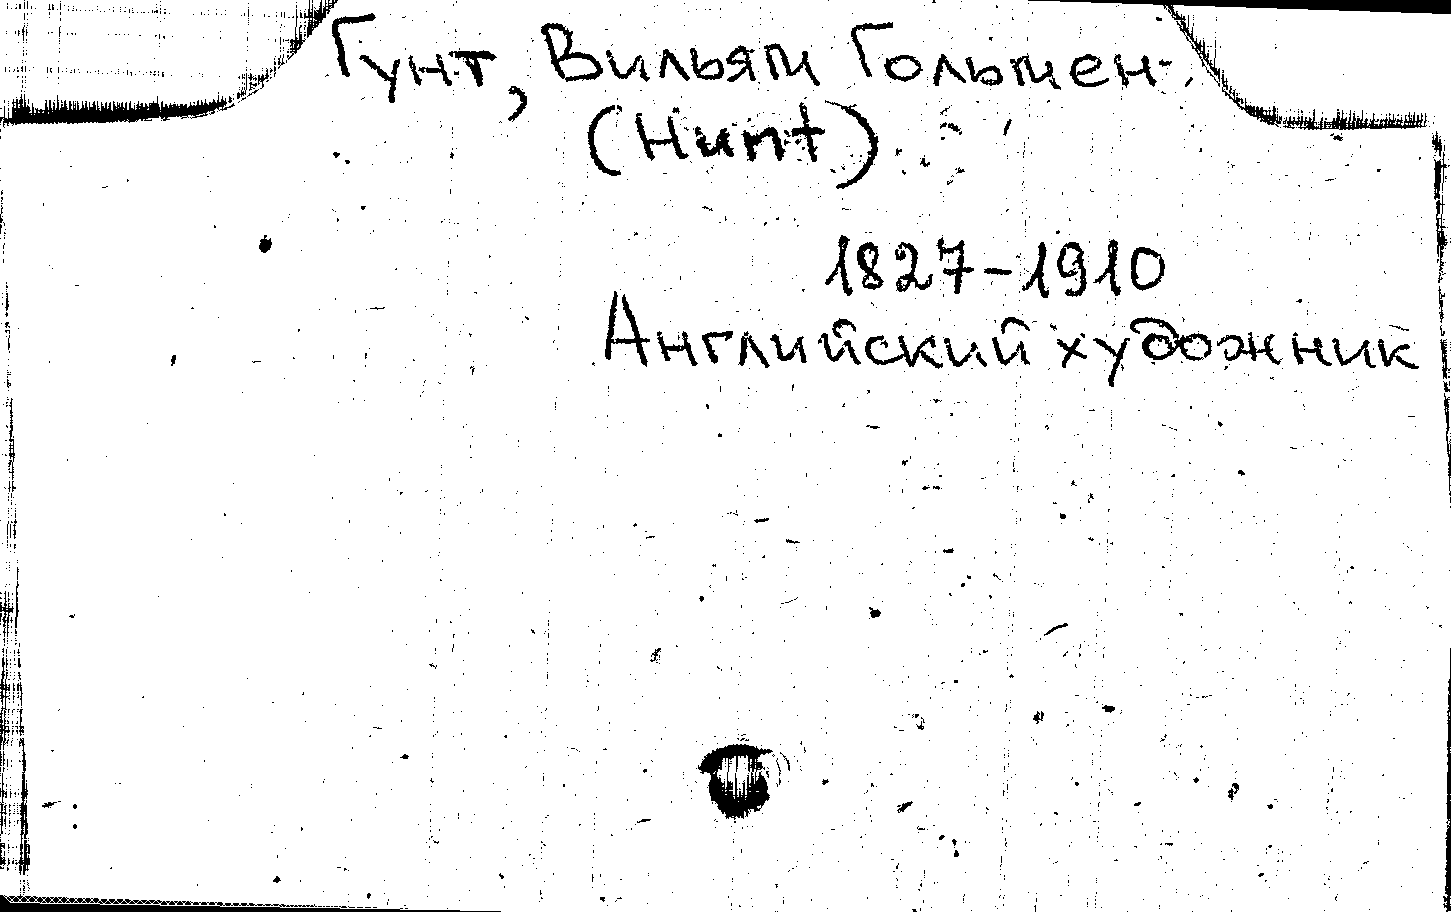 Гунт, Вильям Гольмен-
(Hunt)
1827-1910
Английский художник